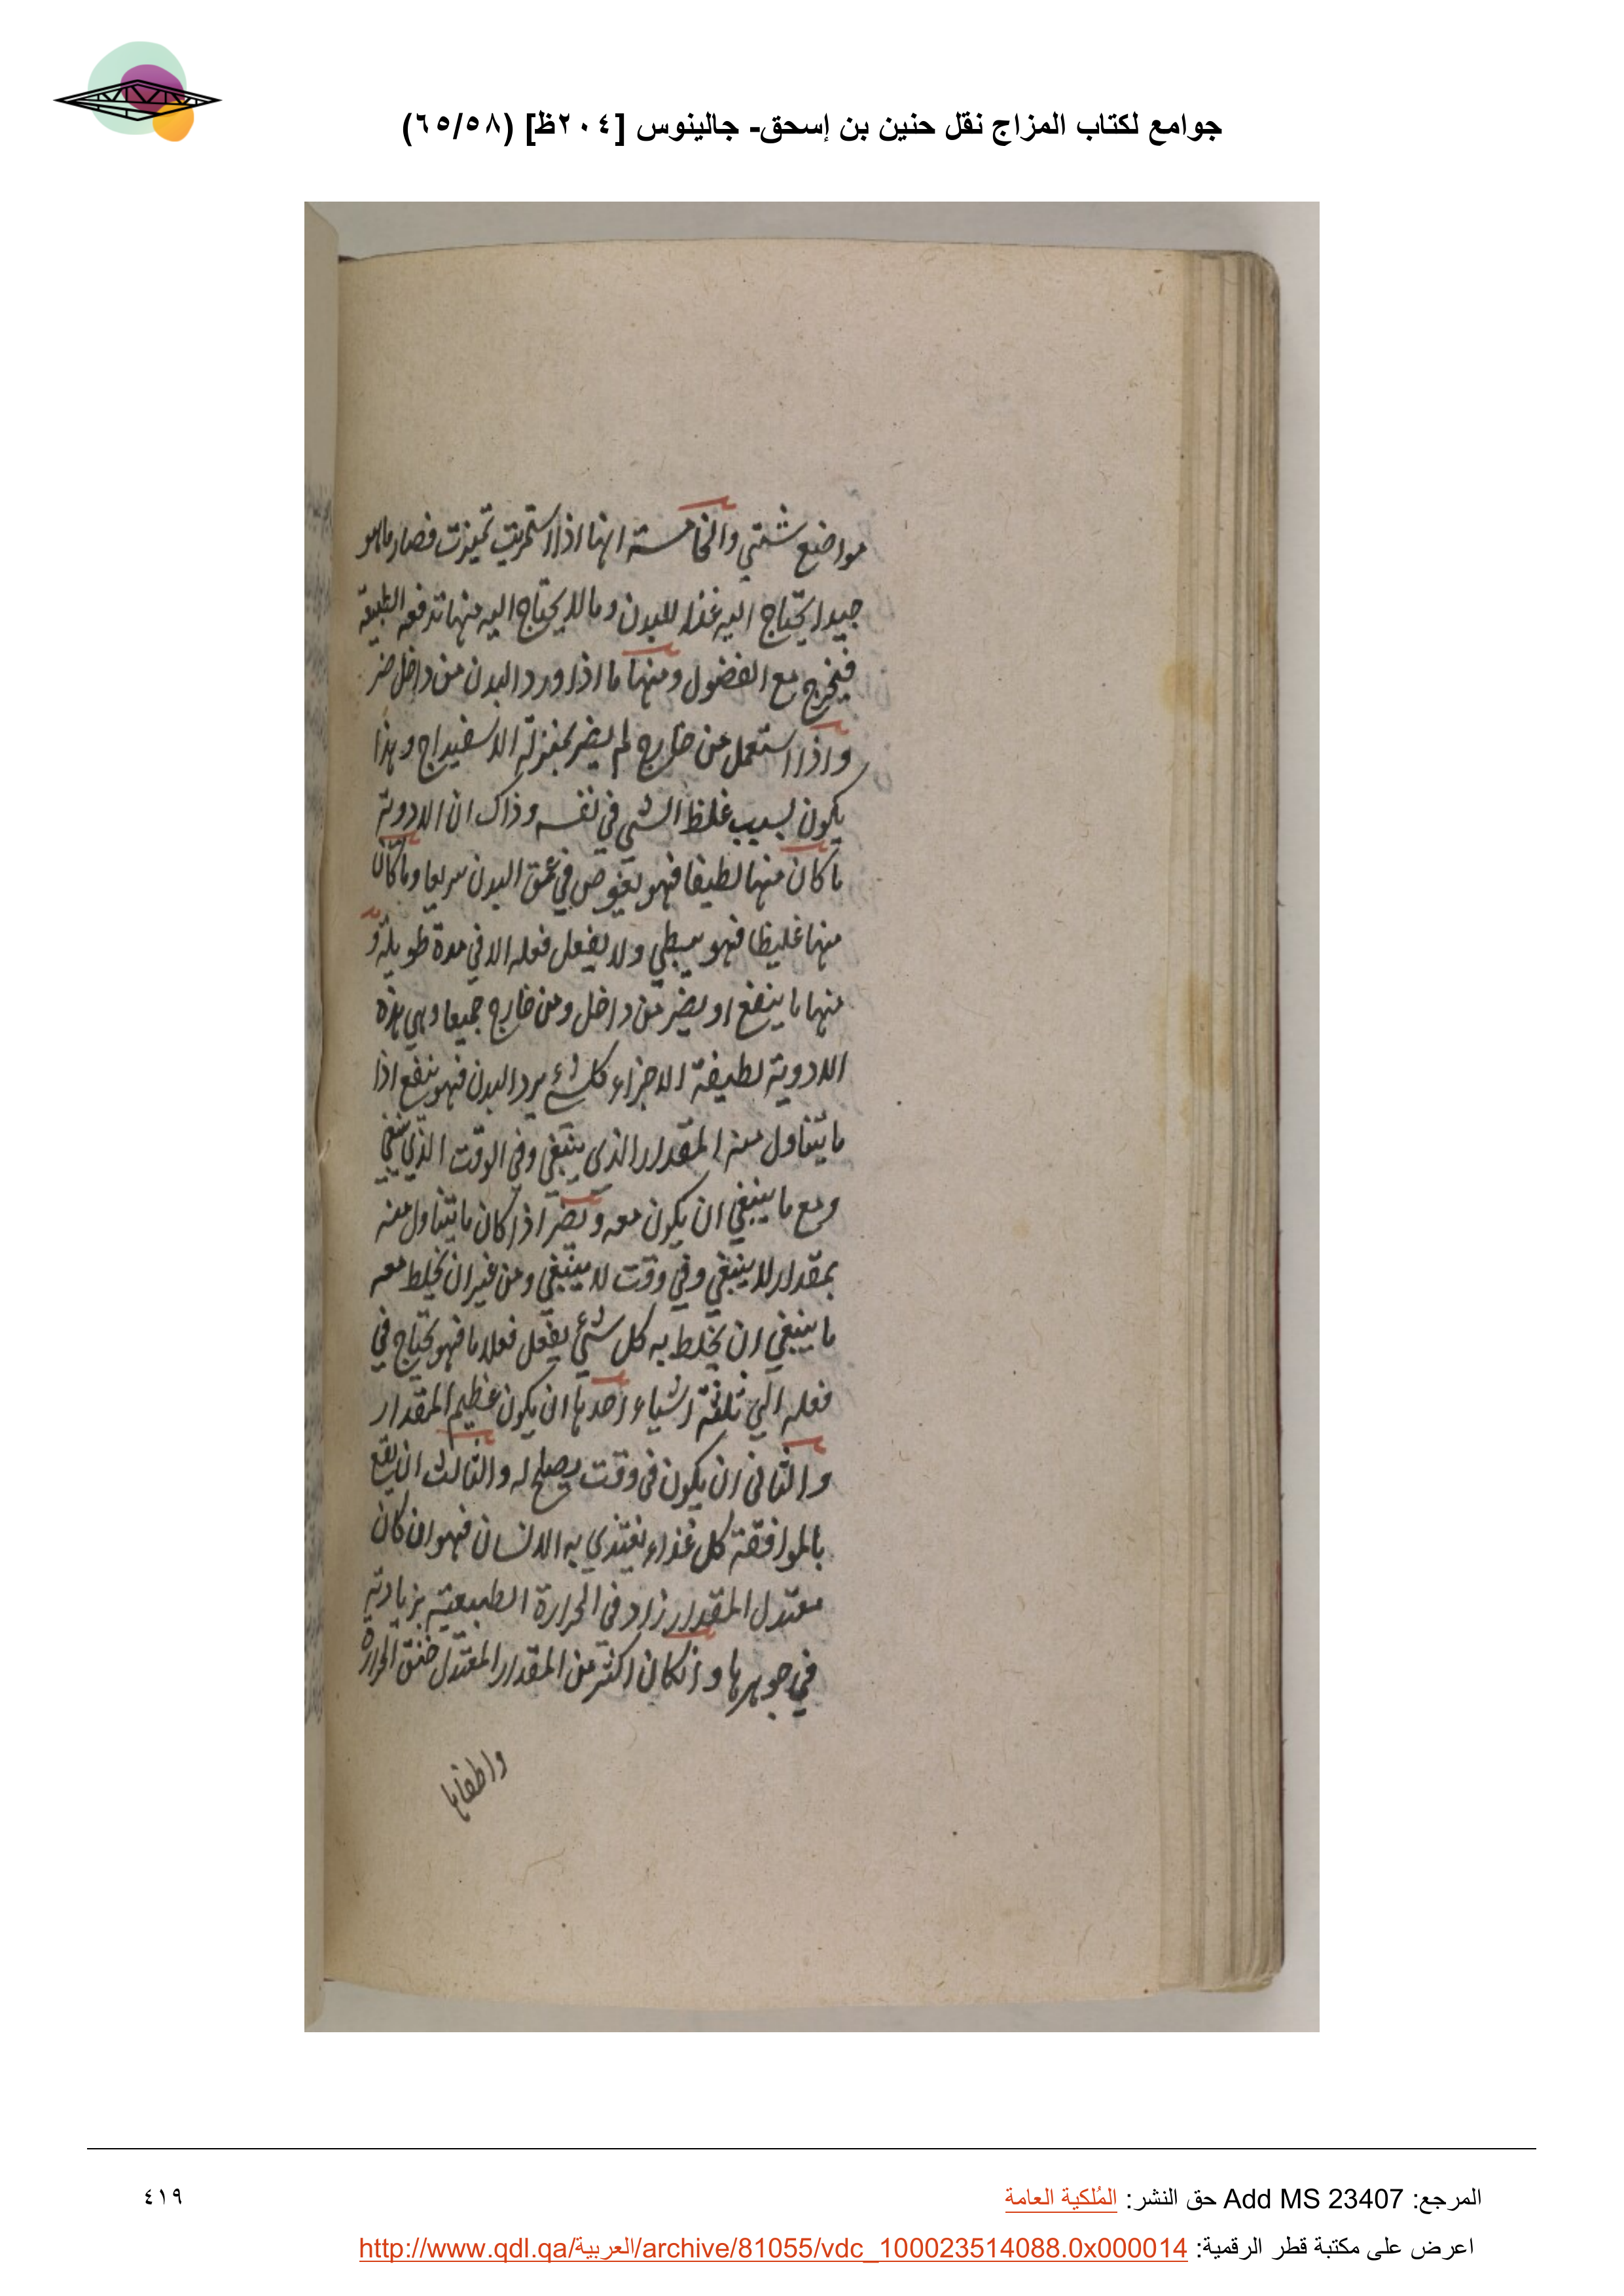 جوامع لكتاب المزاج نقل حنين بن إسحق- جالينوس [٢٠٤ظ] (٦٥/٥٨)
مواضع شتي والخامسة انها اذا استمريت تميزت فصار ما هو
جيدا يحتاج اليه غذا للبدن وما لا يحتاج اليه منها تدفعه الطبيعة
فيخرج مع الفضول ومنها ما اذا ورد البدن من داخل ضر
واذا استعمل من خارج لم يضر بمنزلة الاسفيداج وهذا
يكون لسبب غلظ الشي في نفسه وذاك ان الادوية
ما كان منها لطيفا فهو يغوص في عمق البدن سريعا وما كان
منها غليظا فهو يبطي ولا يفعل فعله الا في مدة طويلة و
منها ما ينفع او يضر من داخل ومن خارج جميعا وهي هذه
الادوية لطيفة الاجزاء كل شيء يرد البدن فهو ينفع اذا
ما يتناول منه المقدار الذي ينبغي وفي الوقت الذي ينبغي
ومع ما ينبغي ان يكون معه ويضر اذا كان ما يتناول منه
بمقدار لا ينبغي وفي وقت لا ينبغي ومن غير ان يخلط معه
ما ينبغي ان يخلط به كل شيء يفعل فعلا ما فهو يحتاج في
فعله الي ثلثة اشياء احدها ان يكون عظيم المقدار
والثاني ان يكون في وقت يصلح له والثالث ان يقع
بالموافقة كل غذاء يغتذي به الانسان فهو ان كان
معتدل المقدار زاد في الحرارة الطبيعية بزيادته
في جوهرها وان كان اكثر من المقدار المعتدل خنق الحرارة
واطفاها
المرجع: Add MS 23407 حق النشر: المُلكية العامة
٤١٩
اعرض على مكتبة قطر الرقمية: http://www.qdl.qa/العربية/archive/81055/vdc_100023514088.0x000014